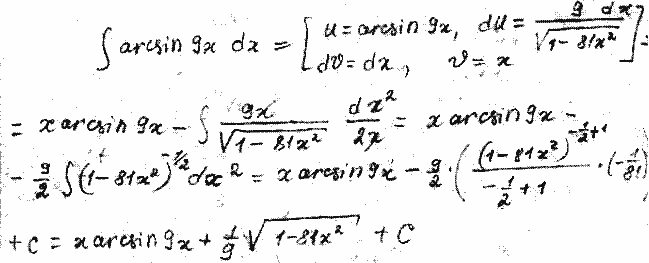 ∫ arcsin 9x dx = [ u = arcsin 9x, du = 9 dx / √(1 - 81x²)
dv = dx, v = x ] =
= x arcsin 9x - ∫ 9x / √(1 - 81x²) dx² / 2x = x arcsin 9x -
- 9/2 ∫ (1 - 81x²)^(-1/2) dx² = x arcsin 9x - 9/2 · ( (1 - 81x²)^(-1/2 + 1) / (-1/2 + 1) · (-1/81)
+ c = x arcsin 9x + 1/9 √(1 - 81x²) + C